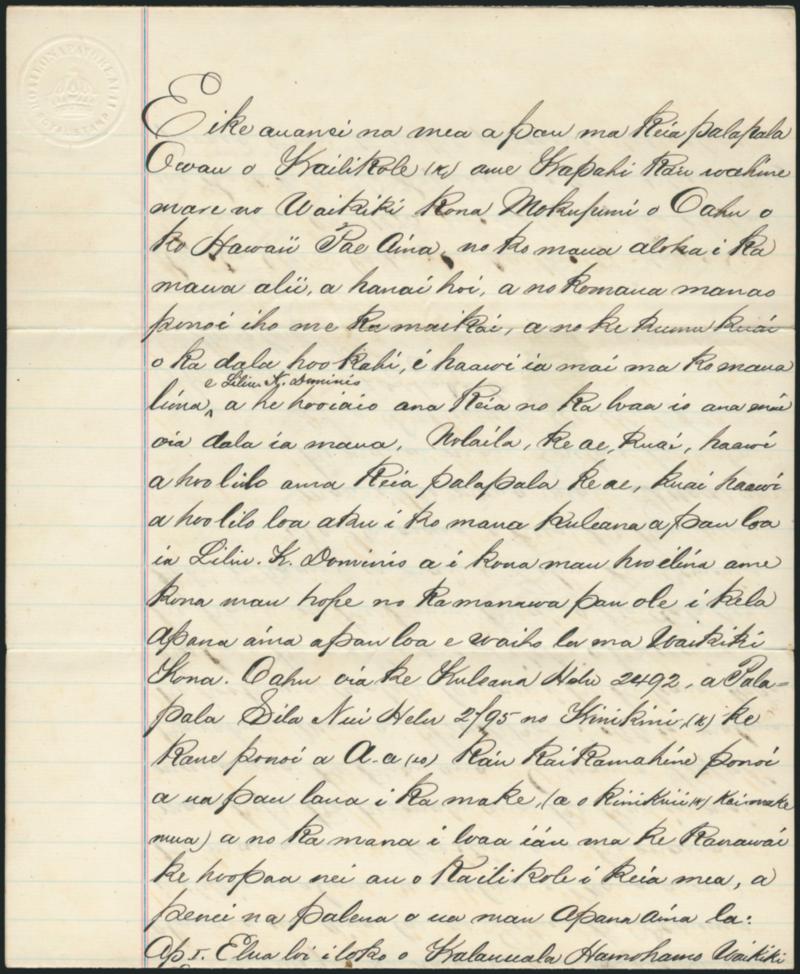 E ike auanei na mea a pau ma Keia palapala
Owau o Kailikole (k) ame Kapahi Ka'u wahine
mare no Waikiki Kona Mokupuni o Oahu o
ko Hawaii Pae Aina, no ko maua aloha i Ka
maua alii, a hanai hoi, a no Komaua manao
ponoi iho me Ka maikai, a no ke kumu kuai
o ka dala hookahi, e haawi ia mai ma ko maua
e Liliu. K. Dominis
lima, a he hooiaio ana Keia no Ka loaa io ana mai
oia dala ia maua, Nolaila, ke ae, Kuai, haawi
a hoolilo ama Keia palapala ke ae, kuai haawi
a hoolilo loa aku i ko maua kuleana a pau loa
ia Liliu. K. Dominis a i kona mau hooilina ame
Kona mau hope no Ka manawa pau ole i kela
apana aina a pau loa e waiho la ma Waikiki
Kona. Oahu oia ke Kuleana Helu 2492, a Pala=
pala Sila Nui Helu 2795 no Kinikini, (k) ke
Kane ponoi a A-a (w) Ka'u Kaikamahine ponoi
a ua pau laua i Ka make, (a o Kinikini (k) Kai make
mua) a no Ka mana i loaa ia'u ma ke Kanawai
ke hoopaa nei au o Kailikole i keia mea, a
penei na palena o ua mau Apana Aina la:
Ap 1. Elua loi iloko o Kalamuala Hamohamo Waikiki